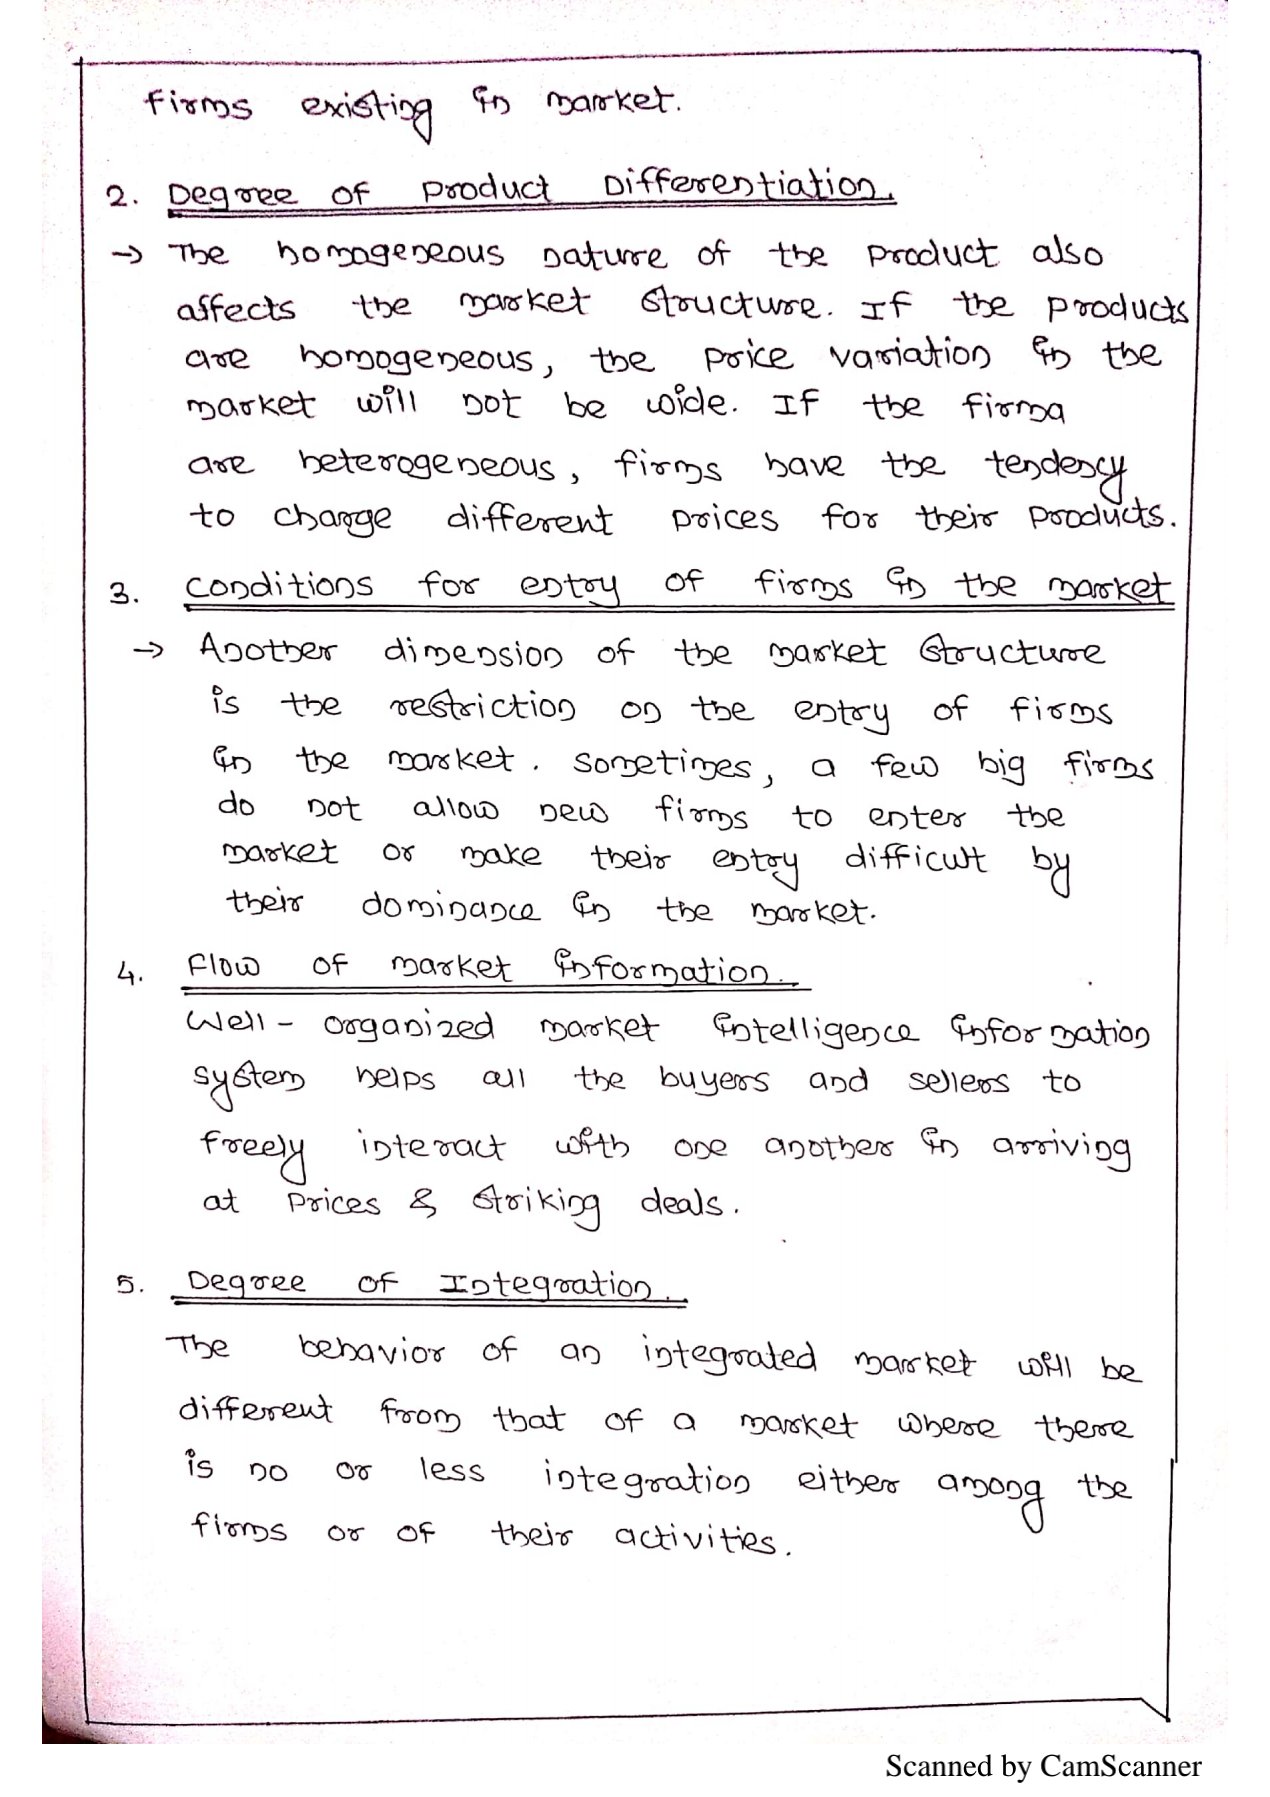 firms existing in market.
2. Degree of product Differentiation.
→ The homogeneous nature of the product also
affects the market structure. If the products
are homogeneous, the price variation in the
market will not be wide. If the firma
are heterogeneous, firms have the tendency
to charge different prices for their products.
3. Conditions for entry of firms in the market
→ Another dimension of the market structure
is the restriction on the entry of firms
in the market. sometimes, a few big firms
do not allow new firms to enter the
market or make their entry difficult by
their dominance in the market.
4. Flow of market information.
Well - organized market intelligence information
system helps all the buyers and sellers to
freely interact with one another in arriving
at prices & striking deals.
5. Degree of Integration.
The behavior of an integrated market will be
different from that of a market where there
is no or less integration either among the
firms or of their activities.
Scanned by CamScanner